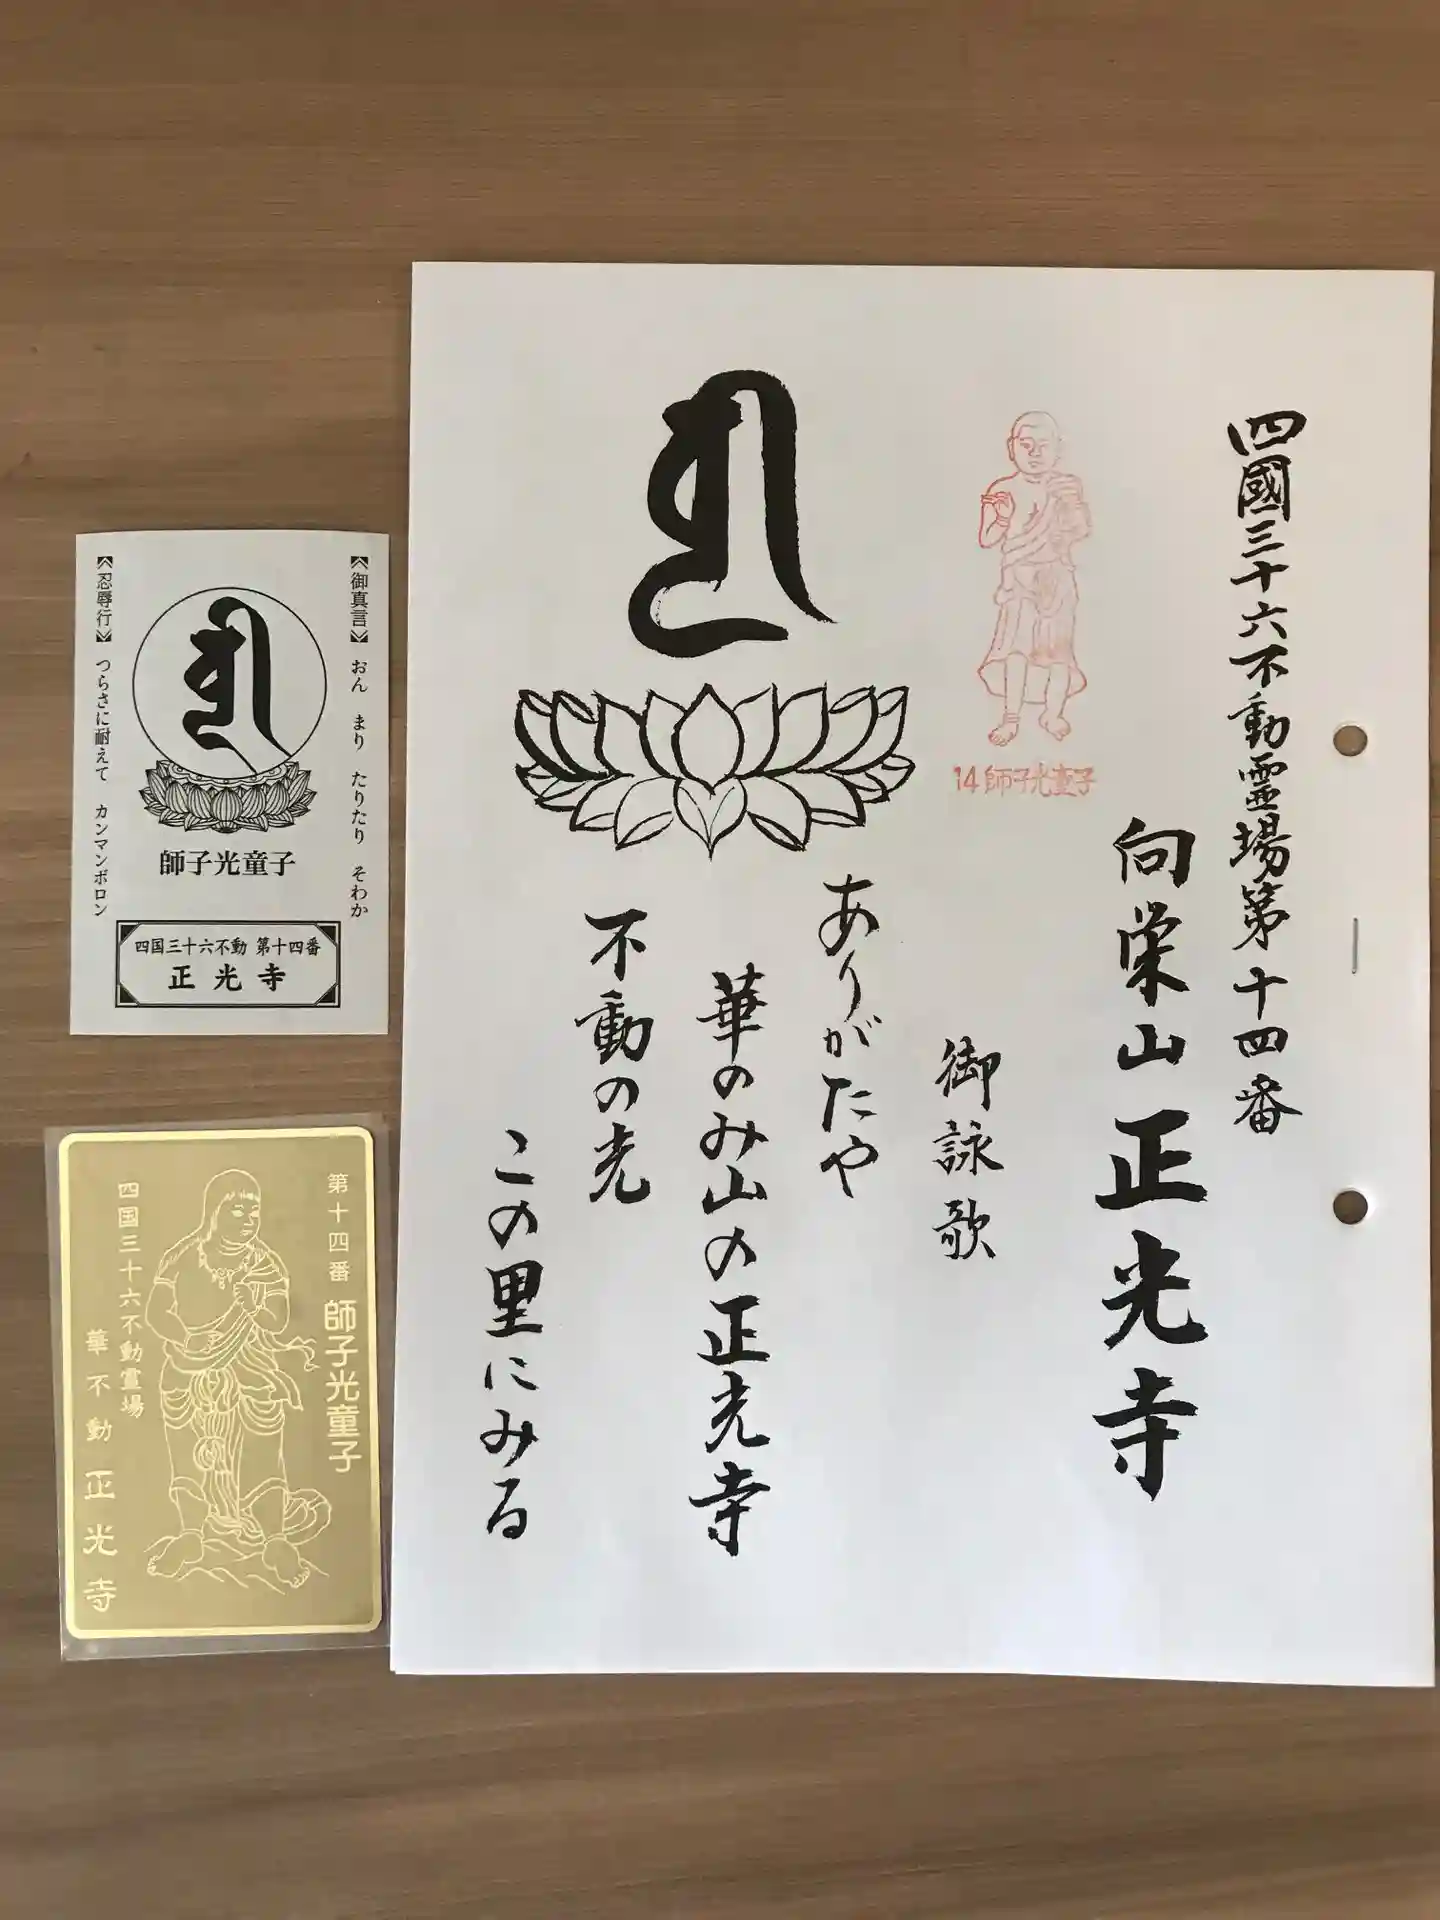 四國三十六不動霊場第十四番
向栄山 正光寺
14 師子光童子
御詠歌
ありがたや
華のみ山の正光寺
不動の光
この里にみる
【御真言】 おん まり たりたり そわか
【忍辱行】 つらさに耐えて カンマンボロン
師子光童子
四国三十六不動 第十四番
正光寺
第十四番 師子光童子
四国三十六不動霊場
華不動 正光寺